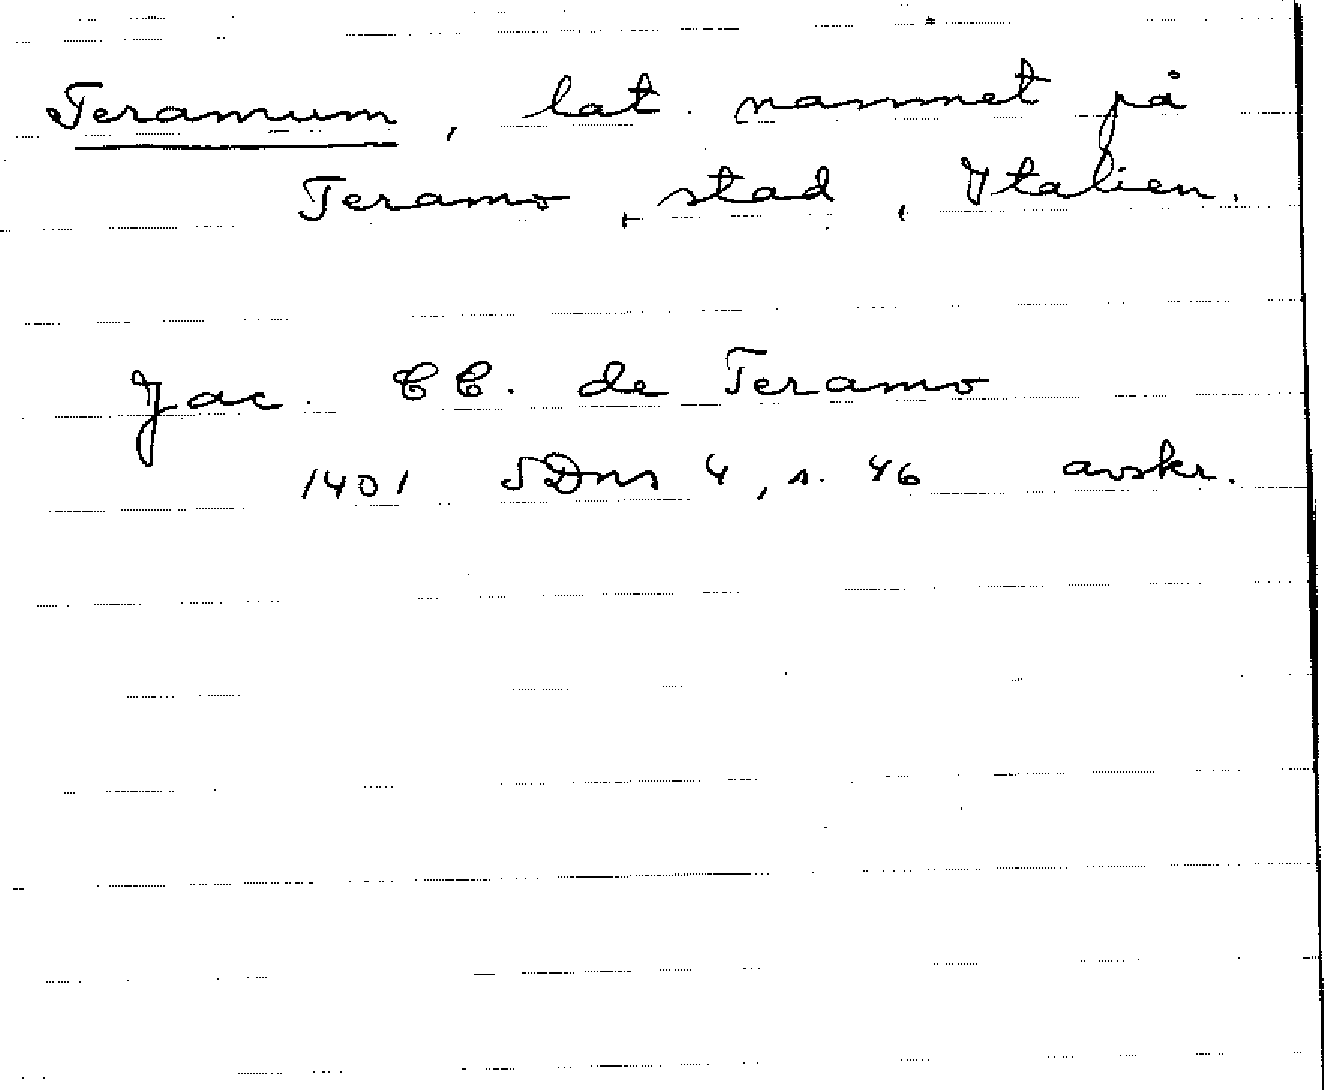 Teramum, lat. namnet på
Teramo, stad, Italien.
Jac. CC. de Teramo
1401 SDns 4, s. 46 avskr.